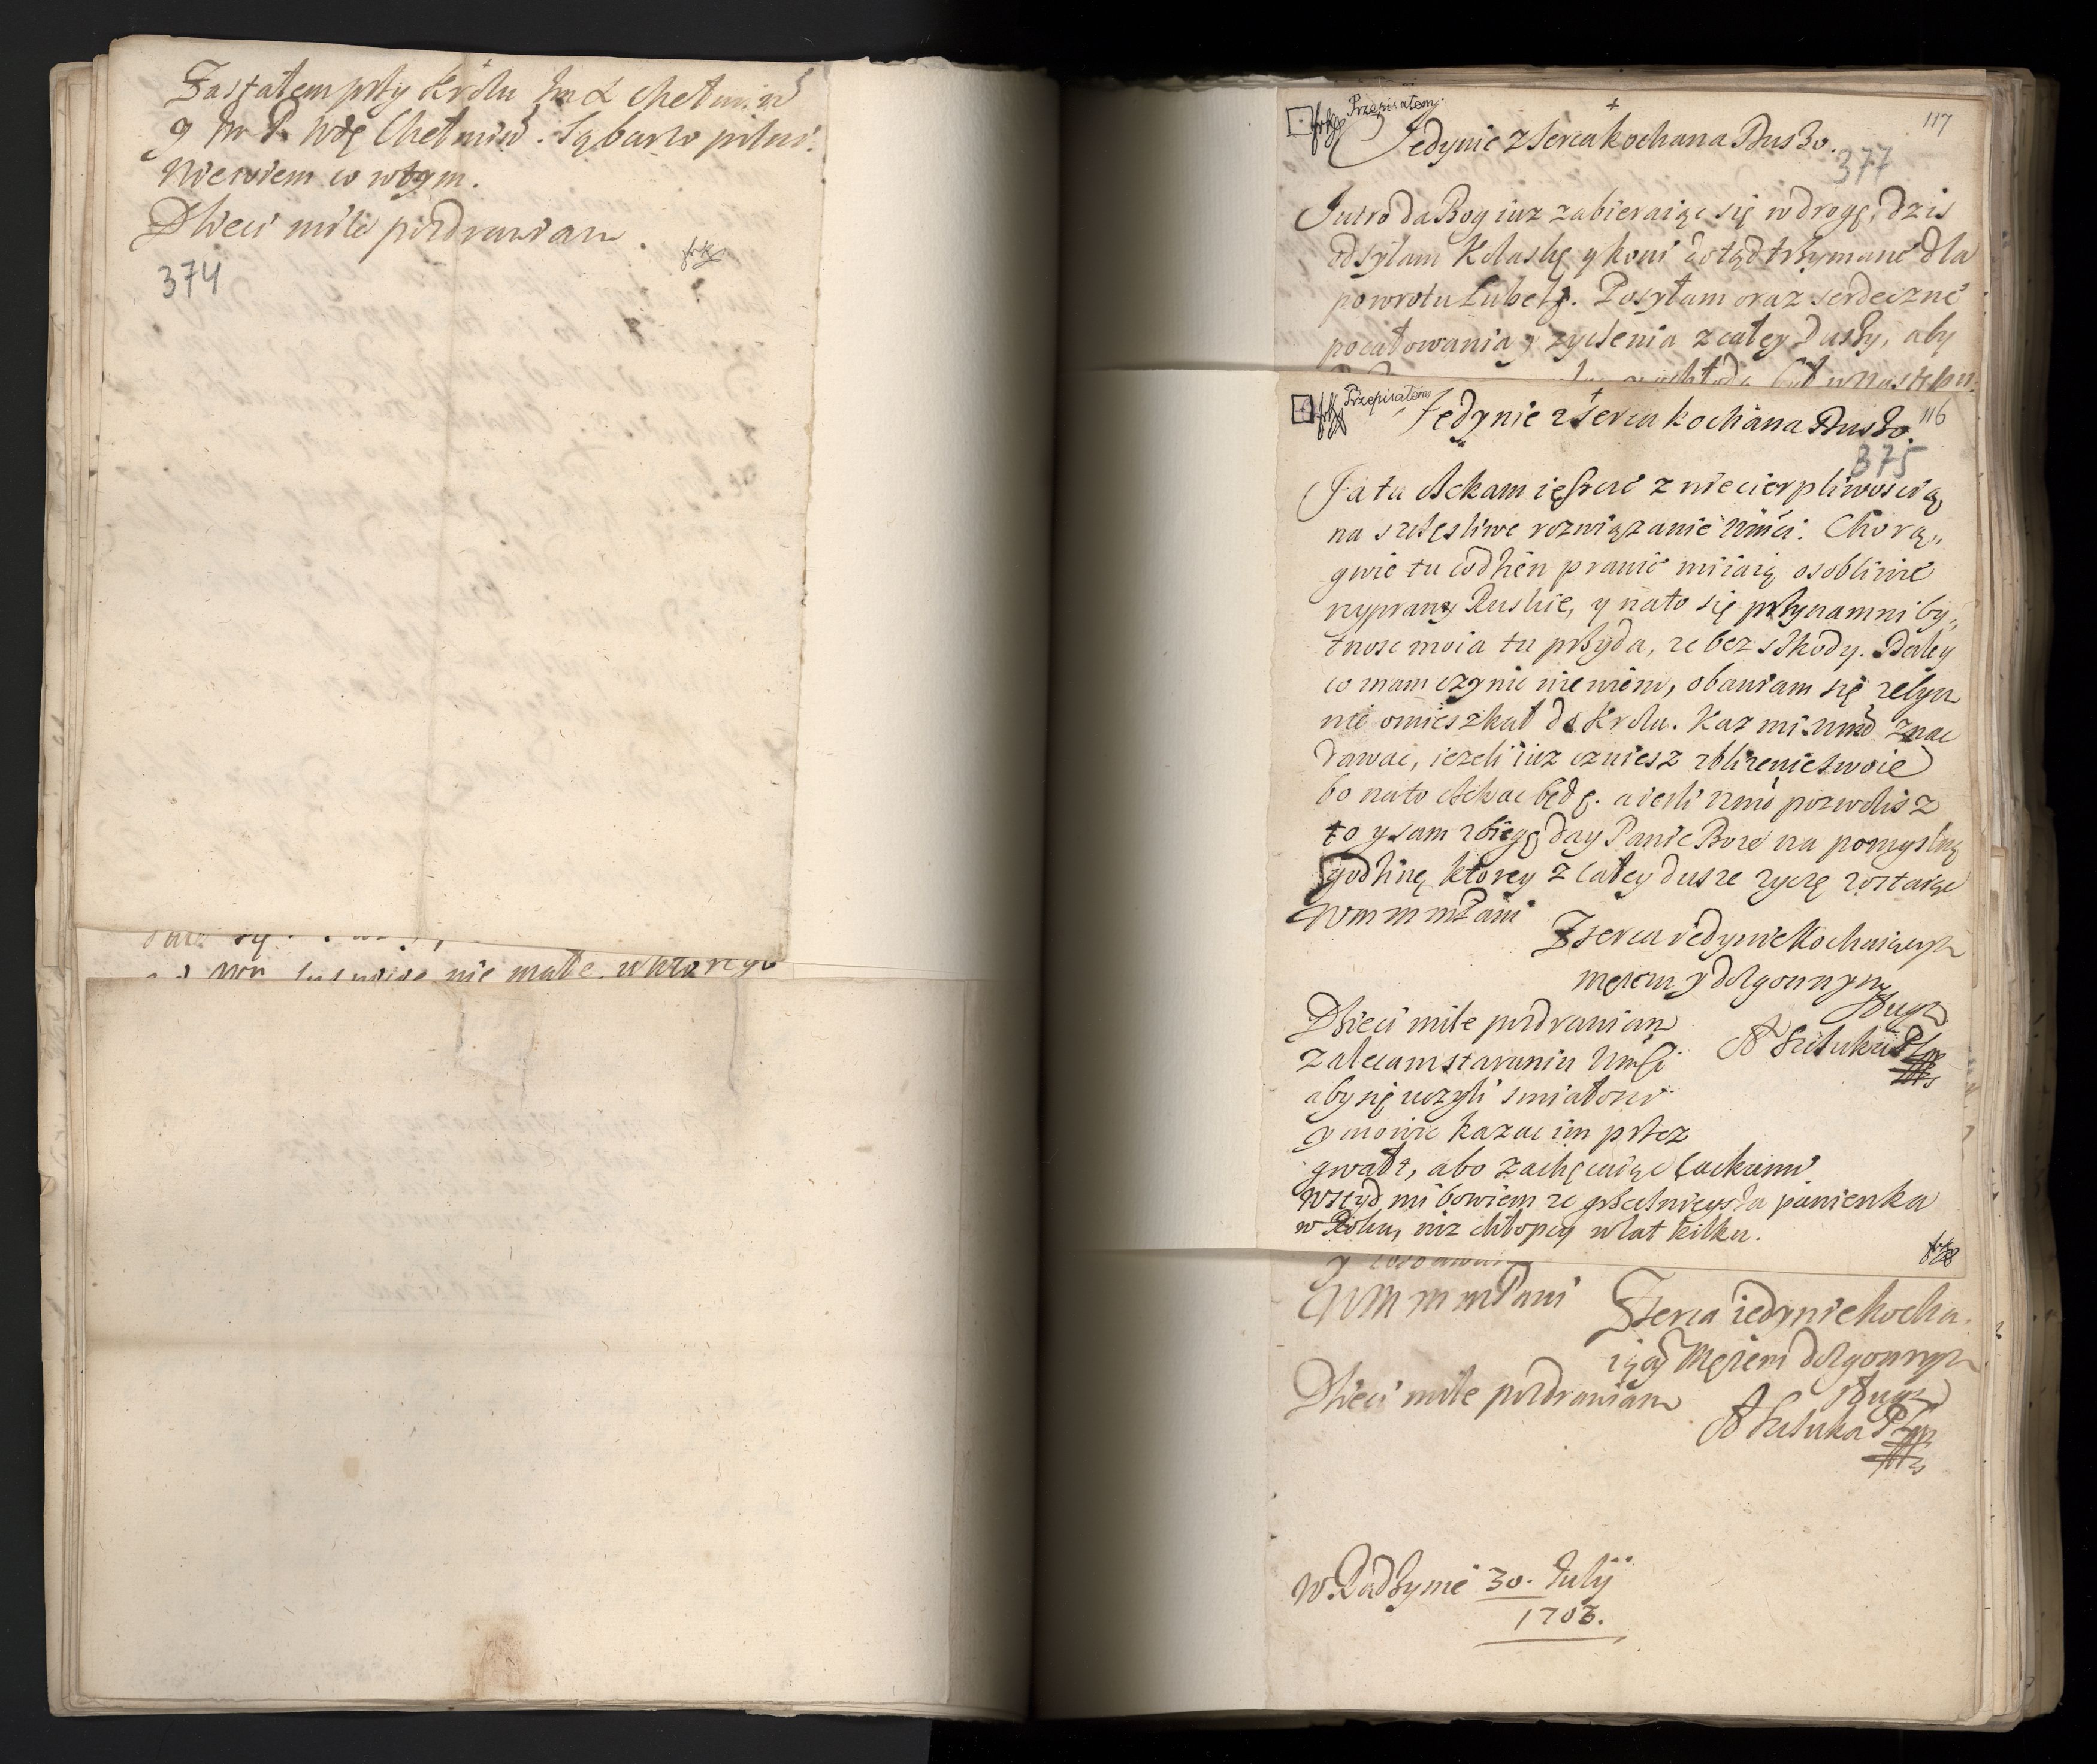 Zastałem przy Krolu Im X Chełmin
y Im P. Wdę Chełmin. Są barzo pilni.
Nie wiem co w tym.
Dzieci mile pozdrawiam.
374
nie małe, w ktorego
Przepisałem
117
Jedynie z serca kochana Duszo.
377
Jutro da Bog iuz zabieraiąc się w drogę, dzis
odsyłam Kolaskę y koni dotąd trzymane dla
powrotu Lubel. Posyłam oraz serdeczne
pocałowania y zyczenia z całey Duszy, aby
Przepisałem
116
Jedynie z serca kochana Duszo.
375
Ja tu czekam ieszcze z niecierpliwoscią
na szczęsliwe rozwiązanie Wmści. Chorą,,
gwie tu codzien prawie miiaią osobliwie
wyprawy Ruskie, y na to się przynamni by,,
tnosc moia tu przyda, ze bez szkody. Daley
co mam czynic nie wiem, obawiam się zebym
nie omieszkał do Krolu. Kaz mi Wmć znac
dawac, iezeli iuz czuiesz zblizenie twoie
bo na to czekac będę. a iesli Wmć pozwolisz
to y sam zbiegę day Panie Boze na pomyslną
godzinę, ktorey z całey dusze zyczę zostaiąc
Wm m mPani
Z serca iedynie kochaiącym
męzem y dozgonnym
sługą
Dzieci mile pozdrawiam
zalecam staraniu Wmści
aby się uczyli smiałosci
y mowic kazac im przez
gwałt, abo zachęcaiąc cackami
wstyd mi bowiem ze grzecznieysza panienka
w Roku, niz chłopcy w lat kilku.
Wm m mPani
Z serca iedynie kocha.
iącym Męzem dozgonnym
sługą
Dzieci mile pozdrawiam
w Radzyme 30. July
1703.